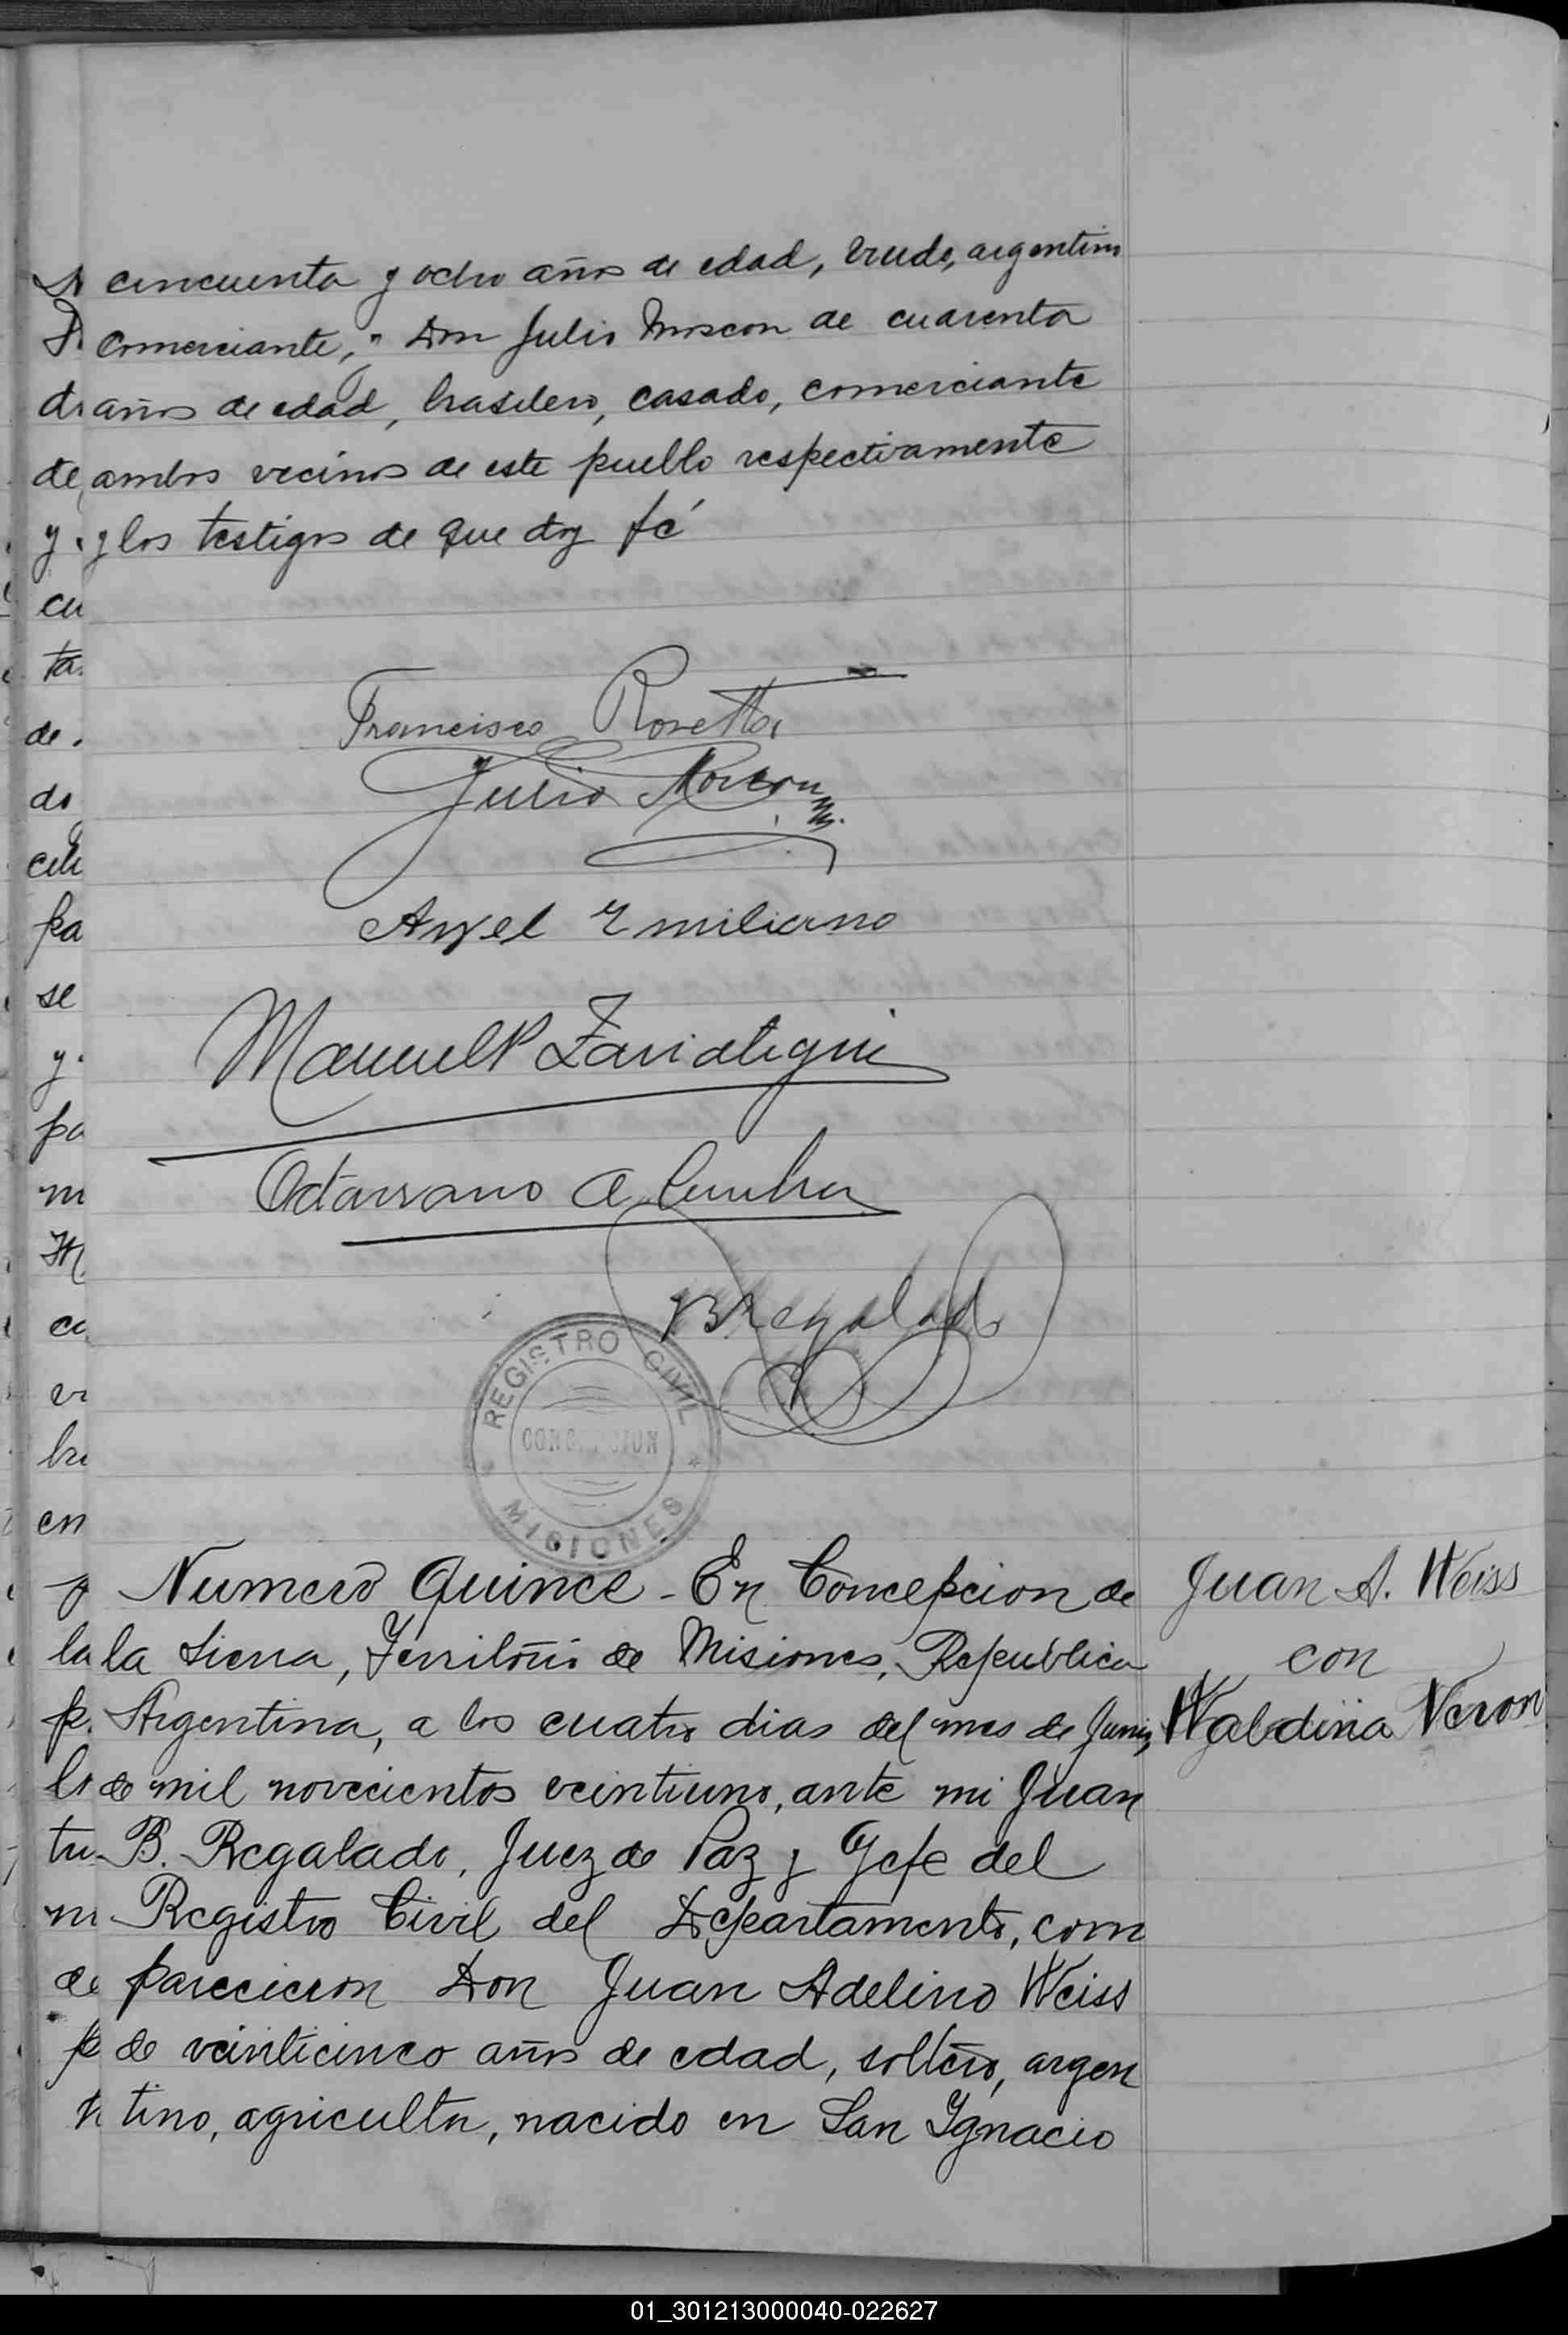 cincuenta y ocho años de edad, viudo, argentino
comerciante, y Don Julio Moscon de cuarenta
años de edad, brasilero, casado, comerciante
ambos vecinos de este pueblo respectivamente
y los testigos de que doy fé
Francisco Rosetta
Julio Moscon
Angel Emiliano
Manuel P Zariategui
Octaviano A Cunha
JBRegalado
REGISTRO CIVIL
CONCEPCION
MISIONES
Numero Quince - En Concepcion de
la Sierra, Territorio de Misiones, Republica
Argentina, a los cuatro dias del mes de Junio,
de mil novecientos veintiuno, ante mi Juan
B. Regalado, Juez de Paz y Gefe del
Registro Civil del Departamento, com
parecieron Don Juan Adelino Weiss
de veinticinco años de edad, soltero, argen
tino, agricultor, nacido en San Ygnacio
Juan A. Weiss
con
Waldina Veron
01_301213000040-022627